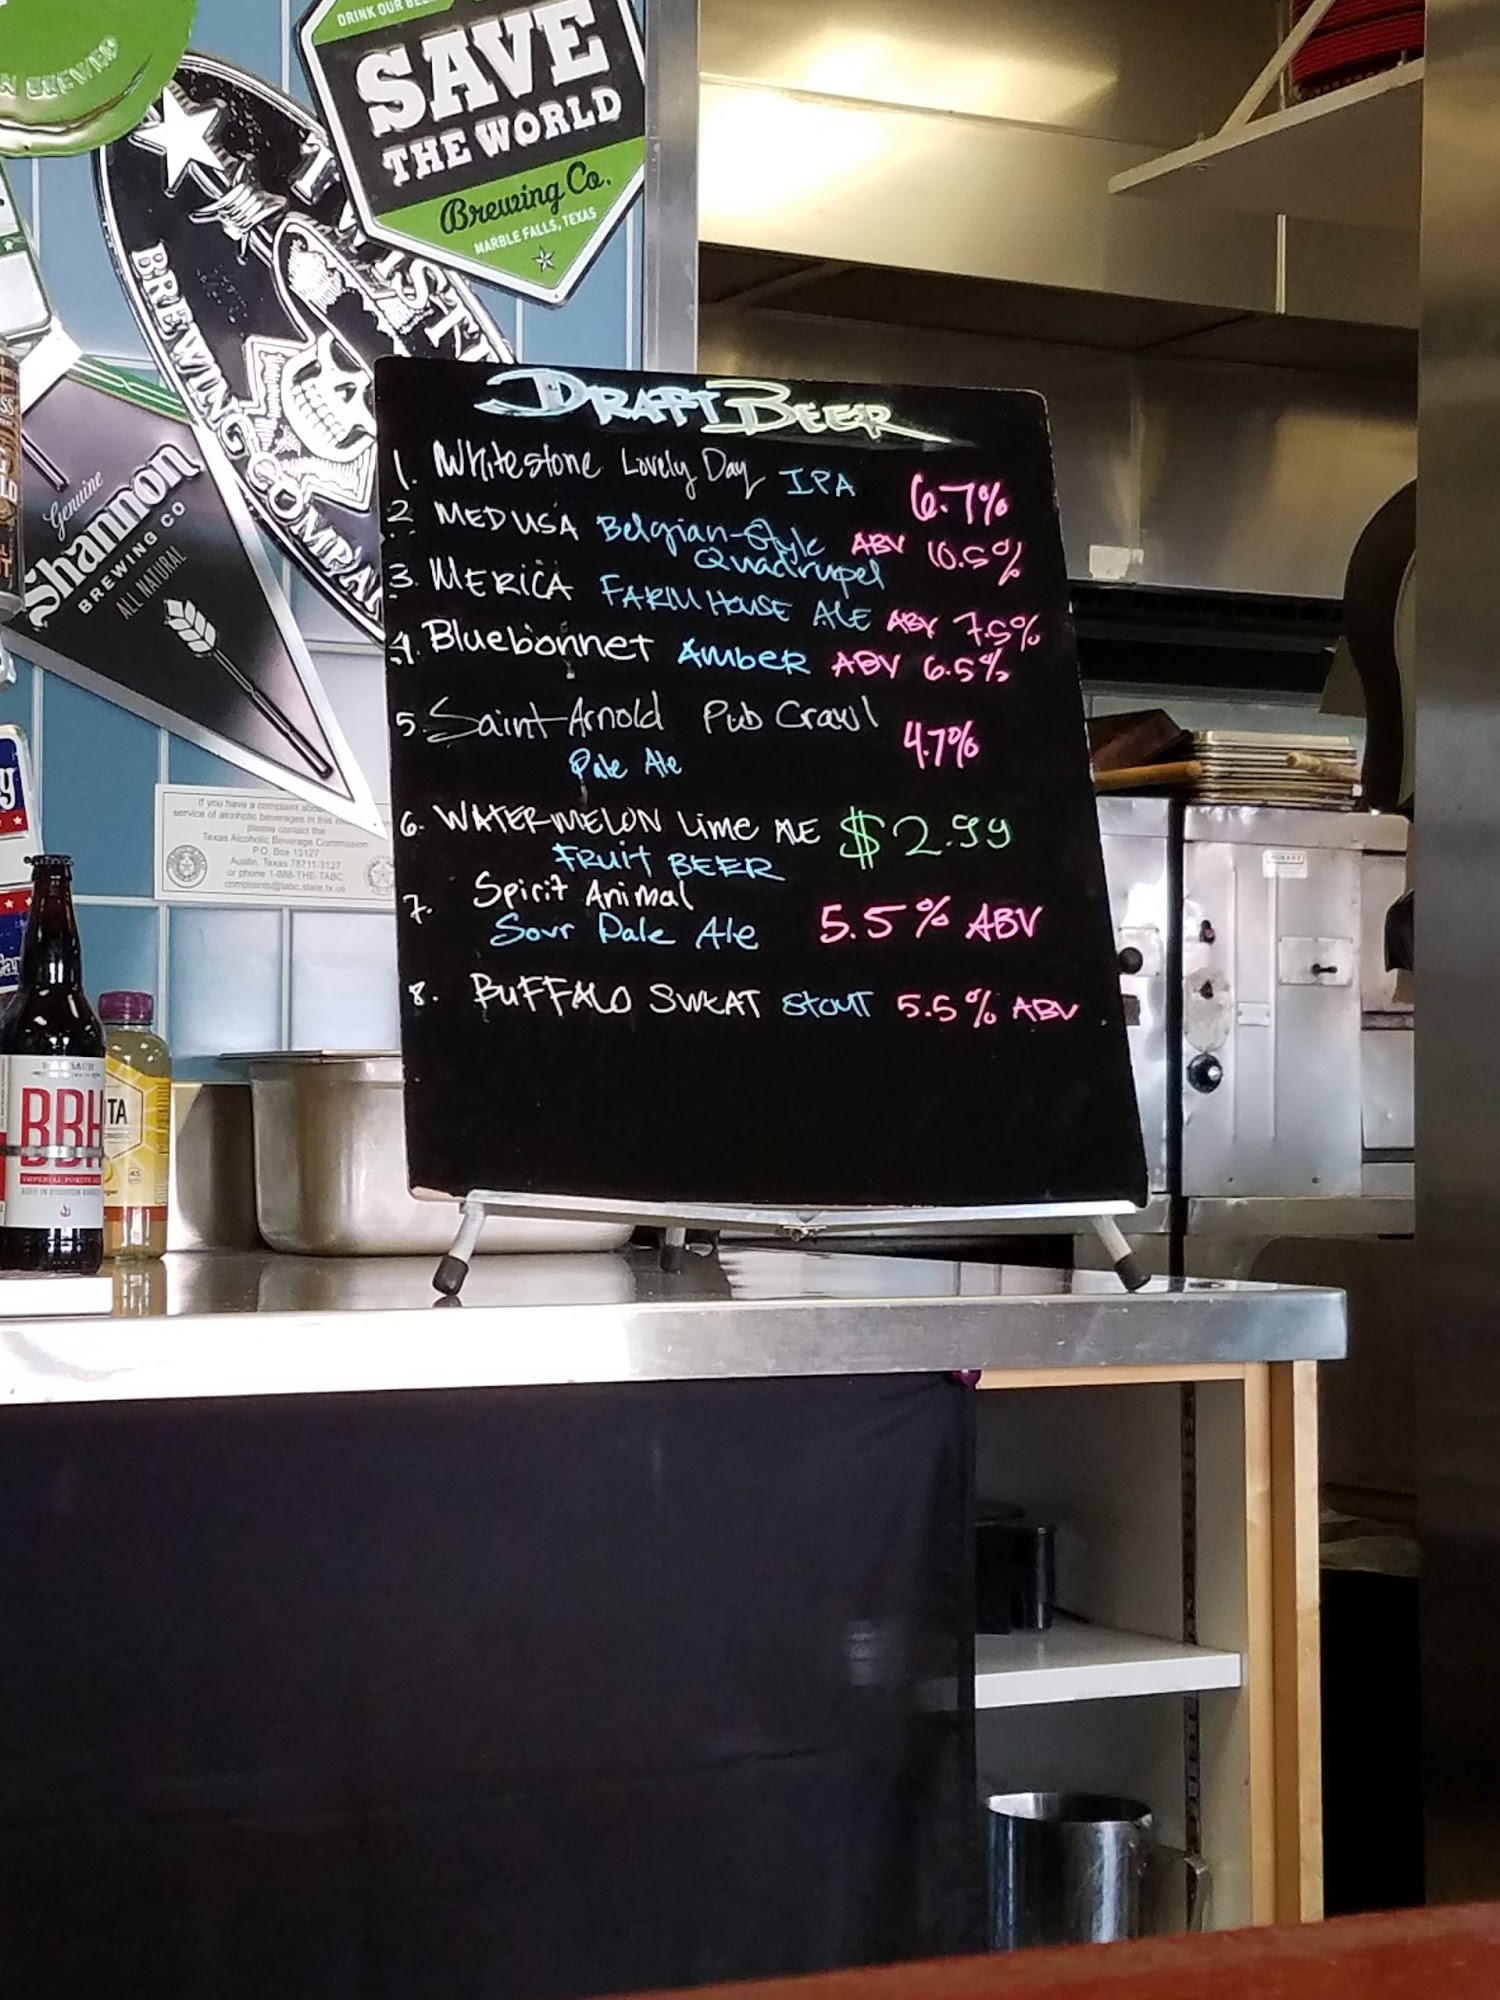 DRINK OUR BEER
SAVE
THE WORLD
Brewing Co.
MARBLE FALLS, TEXAS
BREWING COMPA
Genuine
Shannon
BREWING CO
ALL NATURAL
DRAFT BEER
1. Whitestone Lovely Day IPA 6.7%
2. MEDUSA Belgian-Style ABV 10.5%
Quadrupel
3. MERICA FARMHOUSE ALE ABV 7.5%
4. Bluebonnet Amber ABV 6.5%
5. Saint Arnold Pub Crawl 4.7%
Pale Ale
6. WATERMELON Lime ALE $2.99
FRUIT BEER
7. Spirit Animal
Sour Pale Ale 5.5% ABV
8. BUFFALO SWEAT STOUT 5.5% ABV
If you have a complaint
service of alcoholic beverages in this
please contact the
Texas Alcoholic Beverage Commission
P.O. Box 13127
Austin, Texas 78711-3127
or phone 1-888-THE-TABC
complaints@tabc.state.tx.us
BBH
IMPERIAL PORTER
AGED IN BOURBON BARRELS
TA
HOBART